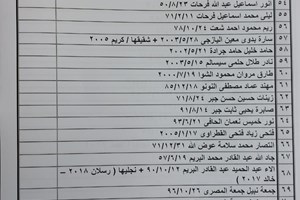 ٥٤ انور اسماعيل عبد الله فرحات ٥٠/٨/٢٣
٥٥ ليلى محمد اسماعيل فرحات ٧١/٢/١١
٥٦ ريم محمود احمد شعت ٧٨/٥/١٠
٥٧ سارة بدور معين اليازجي ٢٠٠٣/٥/٢٨ + شقيقها / كريم ٢٠٠٥
٥٨ حامد خليل حامد جرادة ٢٠٠٢/٥/٢١
٥٩ نادر طلال حتمي سيسالم ٢٠٠٣/٥/١٥
٦٠ طارق مروان محمود الشوا ٢٠٠٠/٧/١٩
٦١ مهند عماد مصطفى النونو ٨٥/١٢/١٨
٦٢ زينات حسين حسن جبر ٧١/٨/٢٤
٦٣ صابرة يحيى ثابت جبر ٩١/٨/١٤
٦٤ نور خميس نعمان الحافي ٩٣/٦/٢١
٦٥ فتحي زياد فتحي القطراوي ٢٠٠٥/١/١٧
٦٦ انتصار محمد سلامة عوض الله ٧١/١٢/٣١
٦٧ جاد الله عبد القادر محمد البريم ٥٧/٦/١٩
٦٨ الاء عبد الحميد عبد القادر البريم ٩٠/١٠/١٢ + نجليها ( رسلان ٢٠١٨ – خالد ٢٠١٧ )
٦٩ جمعة نبيل جمعة المصري ٩٦/١٠/٢٦